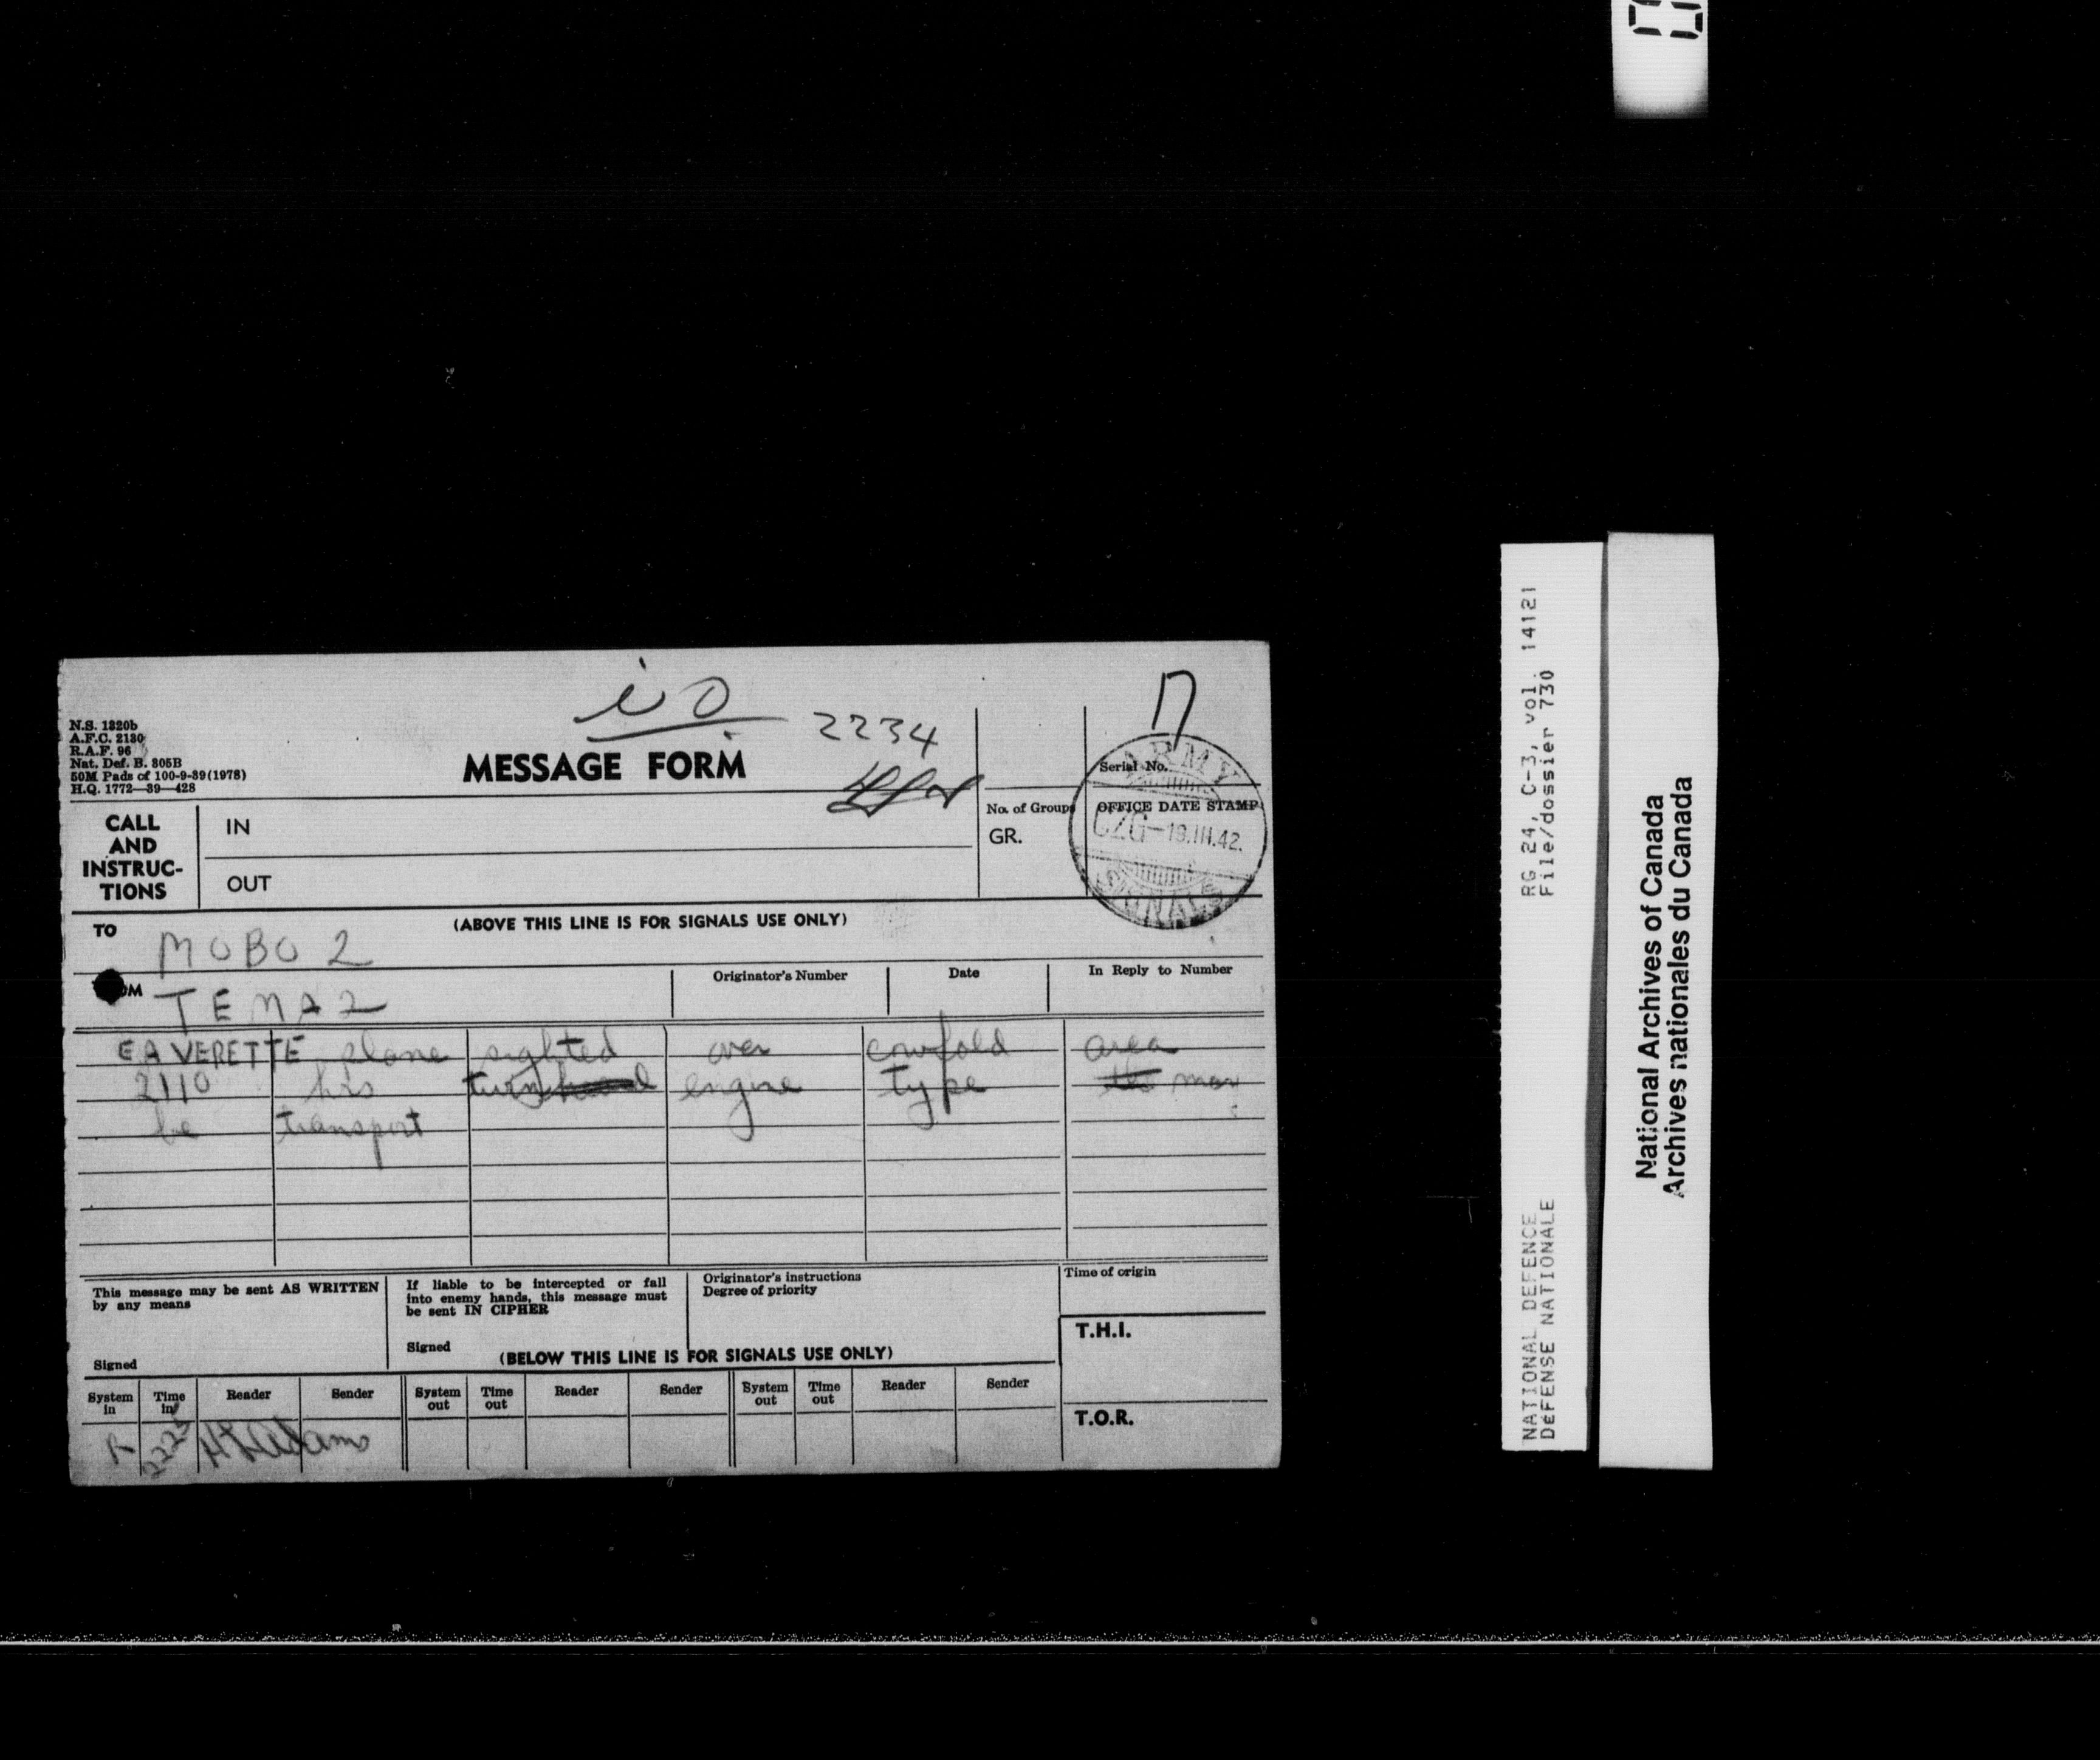 i o
2234
N.S. 1320b
A.F.C. 2130
R.A.F. 96
Nat. Def. B. 305B
50M Pads of 100-9-39(1978)
H.Q. 1772—39—428
MESSAGE FORM
Serial No.
CALL AND INSTRUC-TIONS
IN
OUT
No. of Groups
GR.
OFFICE DATE STAMP
ARMY
CZG-19.III.42.
SIGNALS
(ABOVE THIS LINE IS FOR SIGNALS USE ONLY)
TO MOBO 2
OM TEMA 2
Originator's Number
Date
In Reply to Number
EAVERETTE plane sighted over cowfold area
2110 hrs engine type may
be transport
This message may be sent AS WRITTEN
by any means
Signed
If liable to be intercepted or fall
into enemy hands, this message must
be sent IN CIPHER
Signed
Originator's instructions
Degree of priority
Time of origin
T.H.I.
T.O.R.
(BELOW THIS LINE IS FOR SIGNALS USE ONLY)
System in Time in Reader Sender System out Time out Reader Sender System out Time out Reader Sender
Adams
RG 24, C-3, vol. 14121
File/dossier 730
NATIONAL DEFENCE
DÉFENSE NATIONALE
National Archives of Canada
Archives nationales du Canada